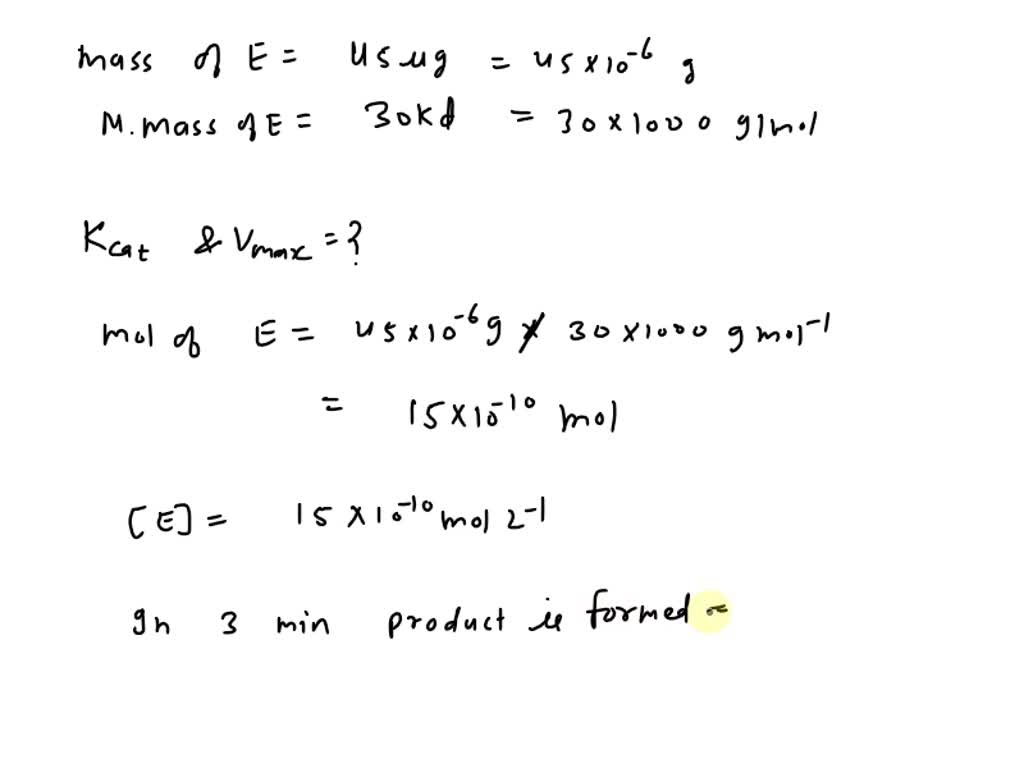 mass of E = 45 ug = 45 × 10⁻⁶ g
M. mass of E = 30 kd = 30 × 1000 g/mol
Kcat & Vmax = ?
mol of E = 45 × 10⁻⁶ g / 30 × 1000 g mol⁻¹
= 15 × 10⁻¹⁰ mol
[E] = 15 × 10⁻¹⁰ mol L⁻¹
In 3 min product is formed =